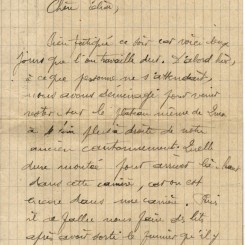 Chère Edia,
Bien fatigué ce soir car voici deux
jours que l'on travaille dur. D'abord hier,
à ce que personne ne s'attendait,
nous avons déménagé pour venir
rester sur le plateau même de
à plus à droite de notre
ancien cantonnement. Quelle
dure montée pour arriver là-haut
dans cette carrière, car on est
encore dans une carrière. Puis
il a fallu nous faire des lits
après avoir sorti le fumier qu'il y